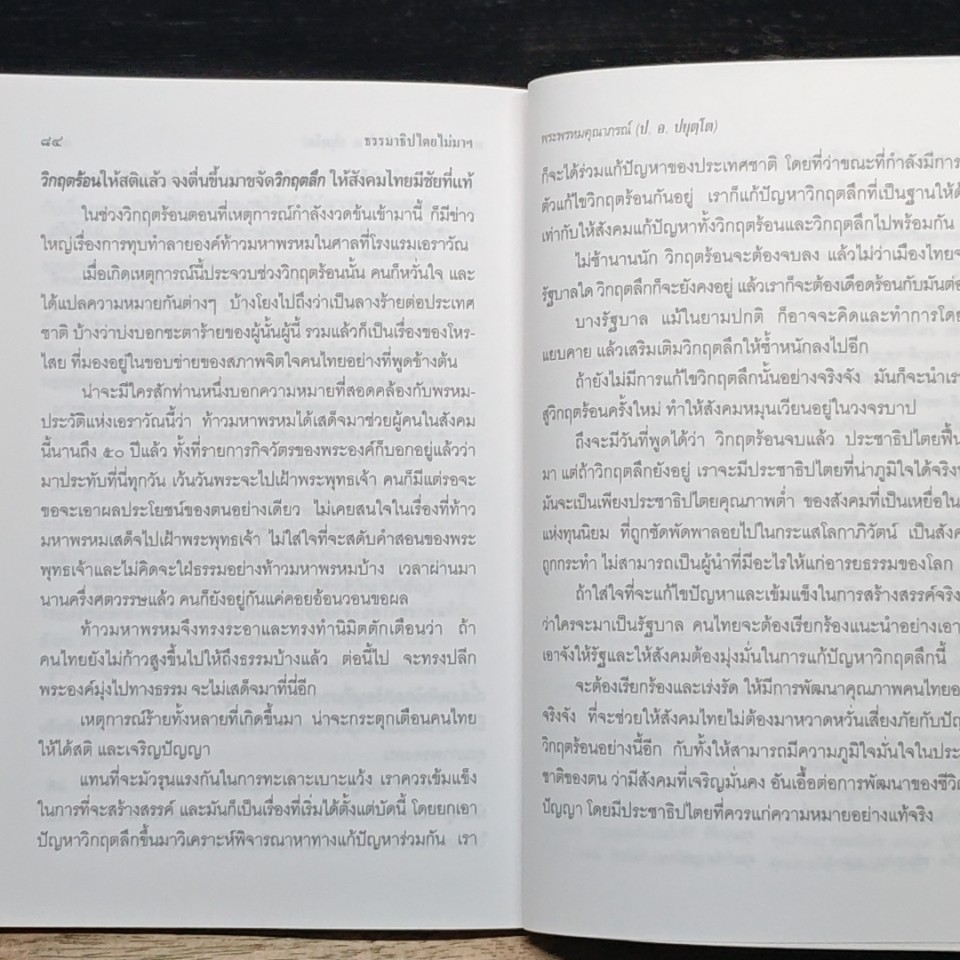 ๘๔
ธรรมาธิปไตยไม่มาฯ
วิกฤตร้อนให้สติแล้ว จงตื่นขึ้นมาขจัดวิกฤตลึก ให้สังคมไทยมีชัยที่แท้
ในช่วงวิกฤตร้อนตอนที่เหตุการณ์กำลังงวดข้นเข้ามานี้ ก็มีข่าว
ใหญ่เรื่องการทุบทำลายองค์ท้าวมหาพรหมในศาลที่โรงแรมเอราวัณ
เมื่อเกิดเหตุการณ์นี้ประจวบช่วงวิกฤตร้อนนั้น คนก็หวั่นใจ และ
ได้แปลความหมายกันต่างๆ บ้างโยงไปถึงว่าเป็นลางร้ายต่อประเทศ
ชาติ บ้างว่าบ่งบอกชะตาร้ายของผู้นั้นผู้นี้ รวมแล้วก็เป็นเรื่องของโหร-
ไสย ที่มองอยู่ในขอบข่ายของสภาพจิตใจคนไทยอย่างที่พูดข้างต้น
น่าจะมีใครสักท่านหนึ่งบอกความหมายที่สอดคล้องกับพรหม-
ประวัติแห่งเอราวัณนี้ว่า ท้าวมหาพรหมได้เสด็จมาช่วยผู้คนในสังคม
นี้นานถึง ๕๐ ปีแล้ว ทั้งที่รายการกิจวัตรของพระองค์ก็บอกอยู่แล้วว่า
มาประทับที่นี่ทุกวัน เว้นวันพระจะไปเฝ้าพระพุทธเจ้า คนก็มีแต่รอจะ
ขอจะเอาผลประโยชน์ของตนอย่างเดียว ไม่เคยสนใจในเรื่องที่ท้าว
มหาพรหมเสด็จไปเฝ้าพระพุทธเจ้า ไม่ใส่ใจที่จะสดับคำสอนของพระ
พุทธเจ้าและไม่คิดจะใฝ่ธรรมอย่างท้าวมหาพรหมบ้าง เวลาผ่านมา
นานครึ่งศตวรรษแล้ว คนก็ยังอยู่กันแค่คอยอ้อนวอนขอผล
ท้าวมหาพรหมจึงทรงระอาและทรงทำนิมิตตักเตือนว่า ถ้า
คนไทยยังไม่ก้าวสูงขึ้นไปให้ถึงธรรมบ้างแล้ว ต่อนี้ไป จะทรงปลีก
พระองค์มุ่งไปทางธรรม จะไม่เสด็จมาที่นี่อีก
เหตุการณ์ร้ายทั้งหลายที่เกิดขึ้นมา น่าจะกระตุกเตือนคนไทย
ให้ได้สติ และเจริญปัญญา
แทนที่จะมัวรุนแรงกันในการทะเลาะเบาะแว้ง เราควรเข้มแข็ง
ในการที่จะสร้างสรรค์ และมันก็เป็นเรื่องที่เริ่มได้ตั้งแต่บัดนี้ โดยยกเอา
ปัญหาวิกฤตลึกขึ้นมาวิเคราะห์พิจารณาหาทางแก้ปัญหาร่วมกัน เรา
พระพรหมคุณาภรณ์ (ป. อ. ปยุตฺโต)
ก็จะได้ร่วมแก้ปัญหาของประเทศชาติ โดยที่ว่าขณะที่กำลังมีการ
ตัวแก้ไขวิกฤตร้อนกันอยู่ เราก็แก้ปัญหาวิกฤตลึกที่เป็นฐานให้ด้
เท่ากับให้สังคมแก้ปัญหาทั้งวิกฤตร้อนและวิกฤตลึกไปพร้อมกัน
ไม่ช้านานนัก วิกฤตร้อนจะต้องจบลง แล้วไม่ว่าเมืองไทยจ
รัฐบาลใด วิกฤตลึกก็จะยังคงอยู่ แล้วเราก็จะต้องเดือดร้อนกับมันต่อ
บางรัฐบาล แม้ในยามปกติ ก็อาจจะคิดและทำการโดย
แยบคาย แล้วเสริมเติมวิกฤตลึกให้ซ้ำหนักลงไปอีก
ถ้ายังไม่มีการแก้ไขวิกฤตลึกนั้นอย่างจริงจัง มันก็จะนำเรา
สู่วิกฤตร้อนครั้งใหม่ ทำให้สังคมหมุนเวียนอยู่ในวงจรบาป
ถึงจะมีวันที่พูดได้ว่า วิกฤตร้อนจบแล้ว ประชาธิปไตยฟื้น
มา แต่ถ้าวิกฤตลึกยังอยู่ เราจะมีประชาธิปไตยที่น่าภูมิใจได้จริง
มันจะเป็นเพียงประชาธิปไตยคุณภาพต่ำ ของสังคมที่เป็นเหยื่อใน
แห่งทุนนิยม ที่ถูกซัดพัดพาลอยไปในกระแสโลกาภิวัตน์ เป็นสังค
ถูกกระทำ ไม่สามารถเป็นผู้นำที่มีอะไรให้แก่อารยธรรมของโลก
ถ้าใส่ใจที่จะแก้ไขปัญหาและเข้มแข็งในการสร้างสรรค์จริง
ว่าใครจะมาเป็นรัฐบาล คนไทยจะต้องเรียกร้องแนะนำอย่างเอา
เอาจังให้รัฐและให้สังคมต้องมุ่งมั่นในการแก้ปัญหาวิกฤตลึกนี้
จะต้องเรียกร้องและเร่งรัด ให้มีการพัฒนาคุณภาพคนไทยอ
จริงจัง ที่จะช่วยให้สังคมไทยไม่ต้องมาหวาดหวั่นเสี่ยงภัยกับปัญ
วิกฤตร้อนอย่างนี้อีก กับทั้งให้สามารถมีความภูมิใจมั่นใจในประ
ชาติของตน ว่ามีสังคมที่เจริญมั่นคง อันเอื้อต่อการพัฒนาของชีวิต
ปัญญา โดยมีประชาธิปไตยที่ควรแก่ความหมายอย่างแท้จริง